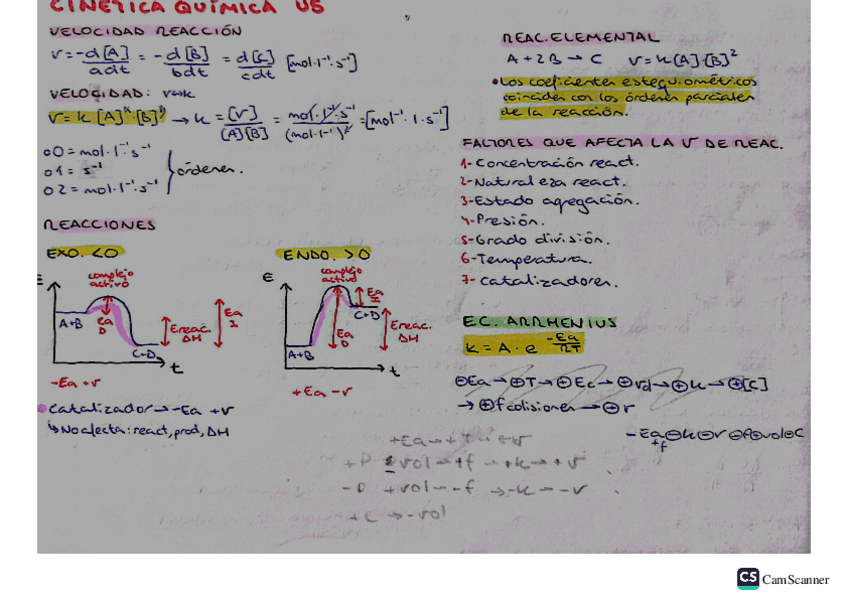 CINÉTICA QUÍMICA U5
VELOCIDAD REACCIÓN
v = -d[A]/adt = -d[B]/bdt = d[C]/cdt [mol·l⁻¹·s⁻¹]
VELOCIDAD: v↔k
v = k [A]ᵅ·[B]ᵝ → k = [v]/[A][B] = mol·l⁻¹·s⁻¹/(mol·l⁻¹)² = [mol⁻¹·l·s⁻¹]
o 0 = mol·l⁻¹·s⁻¹
o 1 = s⁻¹
o 2 = mol·l⁻¹·s⁻¹
órdenes.
REACCIONES
EXO. <0
E
complejo
activo
A+B
Ea
D
C+D
Ereac.
ΔH
Ea
I
t
-Ea +v
ENDO. >0
E
complejo
activo
Ea
C+D
Ea
D
A+B
Ereac.
ΔH
t
+Ea -v
Catalizador → -Ea +v
↳ No afecta: react, prod, ΔH
REAC. ELEMENTAL
A + 2B → C v = k[A]·[B]²
• Los coeficientes estequiométricos
coinciden con los órdenes parciales
de la reacción.
FACTORES QUE AFECTA LA V DE REAC.
1- Concentración react.
2- Naturaleza react.
3- Estado agregación.
4- Presión.
5- Grado división.
6- Temperatura.
7- Catalizadores.
EC. ARRHENIUS
k = A · e^(-Ea/RT)
⊖Ea → ⊕T → ⊕Ec → ⊕vd → ⊕k → ⊕[C]
→ ⊕f colisiones → ⊕v
+P vol → +f → +k → +v
-P +vol → -f → -k → -v
+C → -vol
CS CamScanner